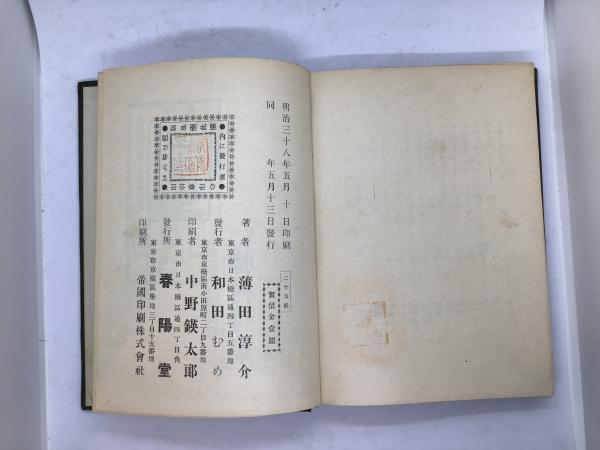 明治三十八年五月十日印刷
同年五月十三日發行
實價金壹圓
著者 薄田淳介
東京市日本橋區通四丁目五番地
發行者 和田むめ
東京市京橋區南小田原町二丁目九番地
印刷者 中野鍈太郎
東京市日本橋區通四丁目角
發行所 春陽堂
東京市京橋區築地三丁目十五番地
印刷所 帝國印刷株式會社